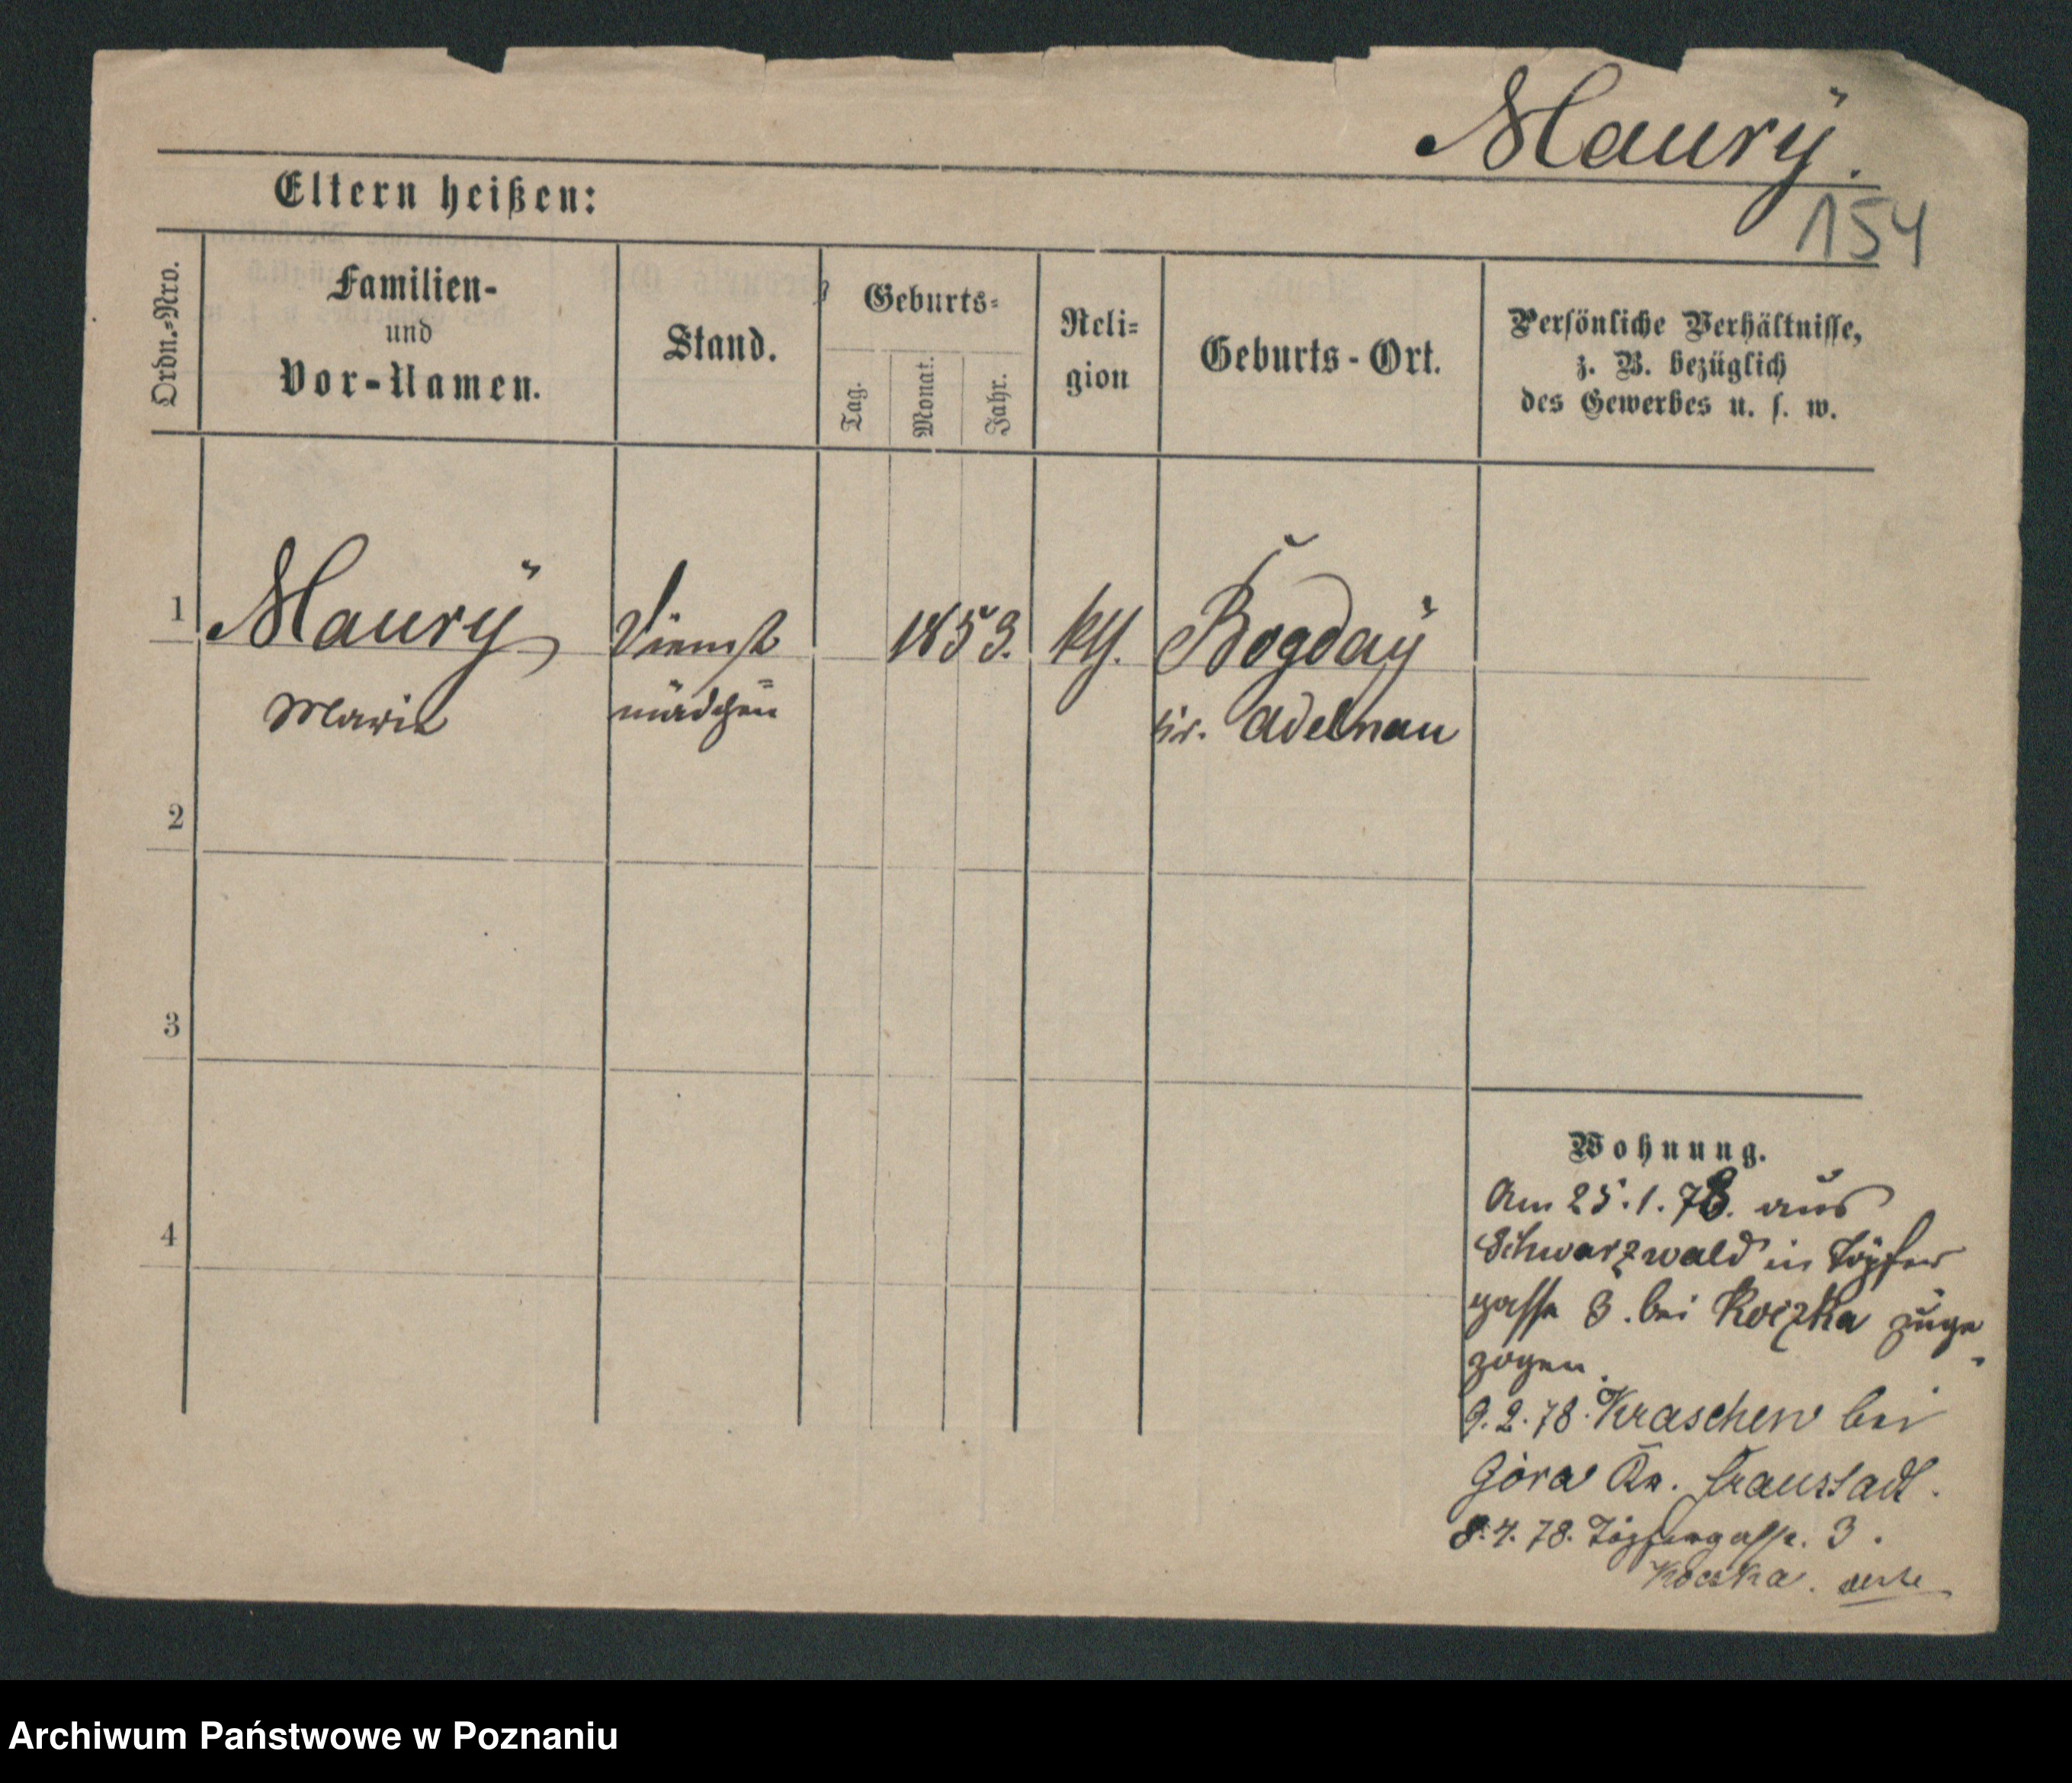 Maurÿ.
154
Eltern heißen:
Ordn.=Nro.
Familien-
und
Vor-Namen.
Stand.
Geburts=
Tag.
Monat.
Jahr.
Reli=
gion
Geburts-Ort.
Persönliche Verhältnisse,
z. B. bezüglich
des Gewerbes u. s. w.
1 Maurÿ Dienst 1853. kth. Bogdaÿ
Marie mädchen Kr. Adelnau
2
3
4
Wohnung.
Am 25.1.78. aus
Schwarzwald in Töpfer
gasse 3. bei Koczka zuge
zogen.
9.2.78. Kraschen bei
Góra Kr. Fraustadt.
8.4.78. Töpfergasse. 3.
Koczka.
Archiwum Państwowe w Poznaniu